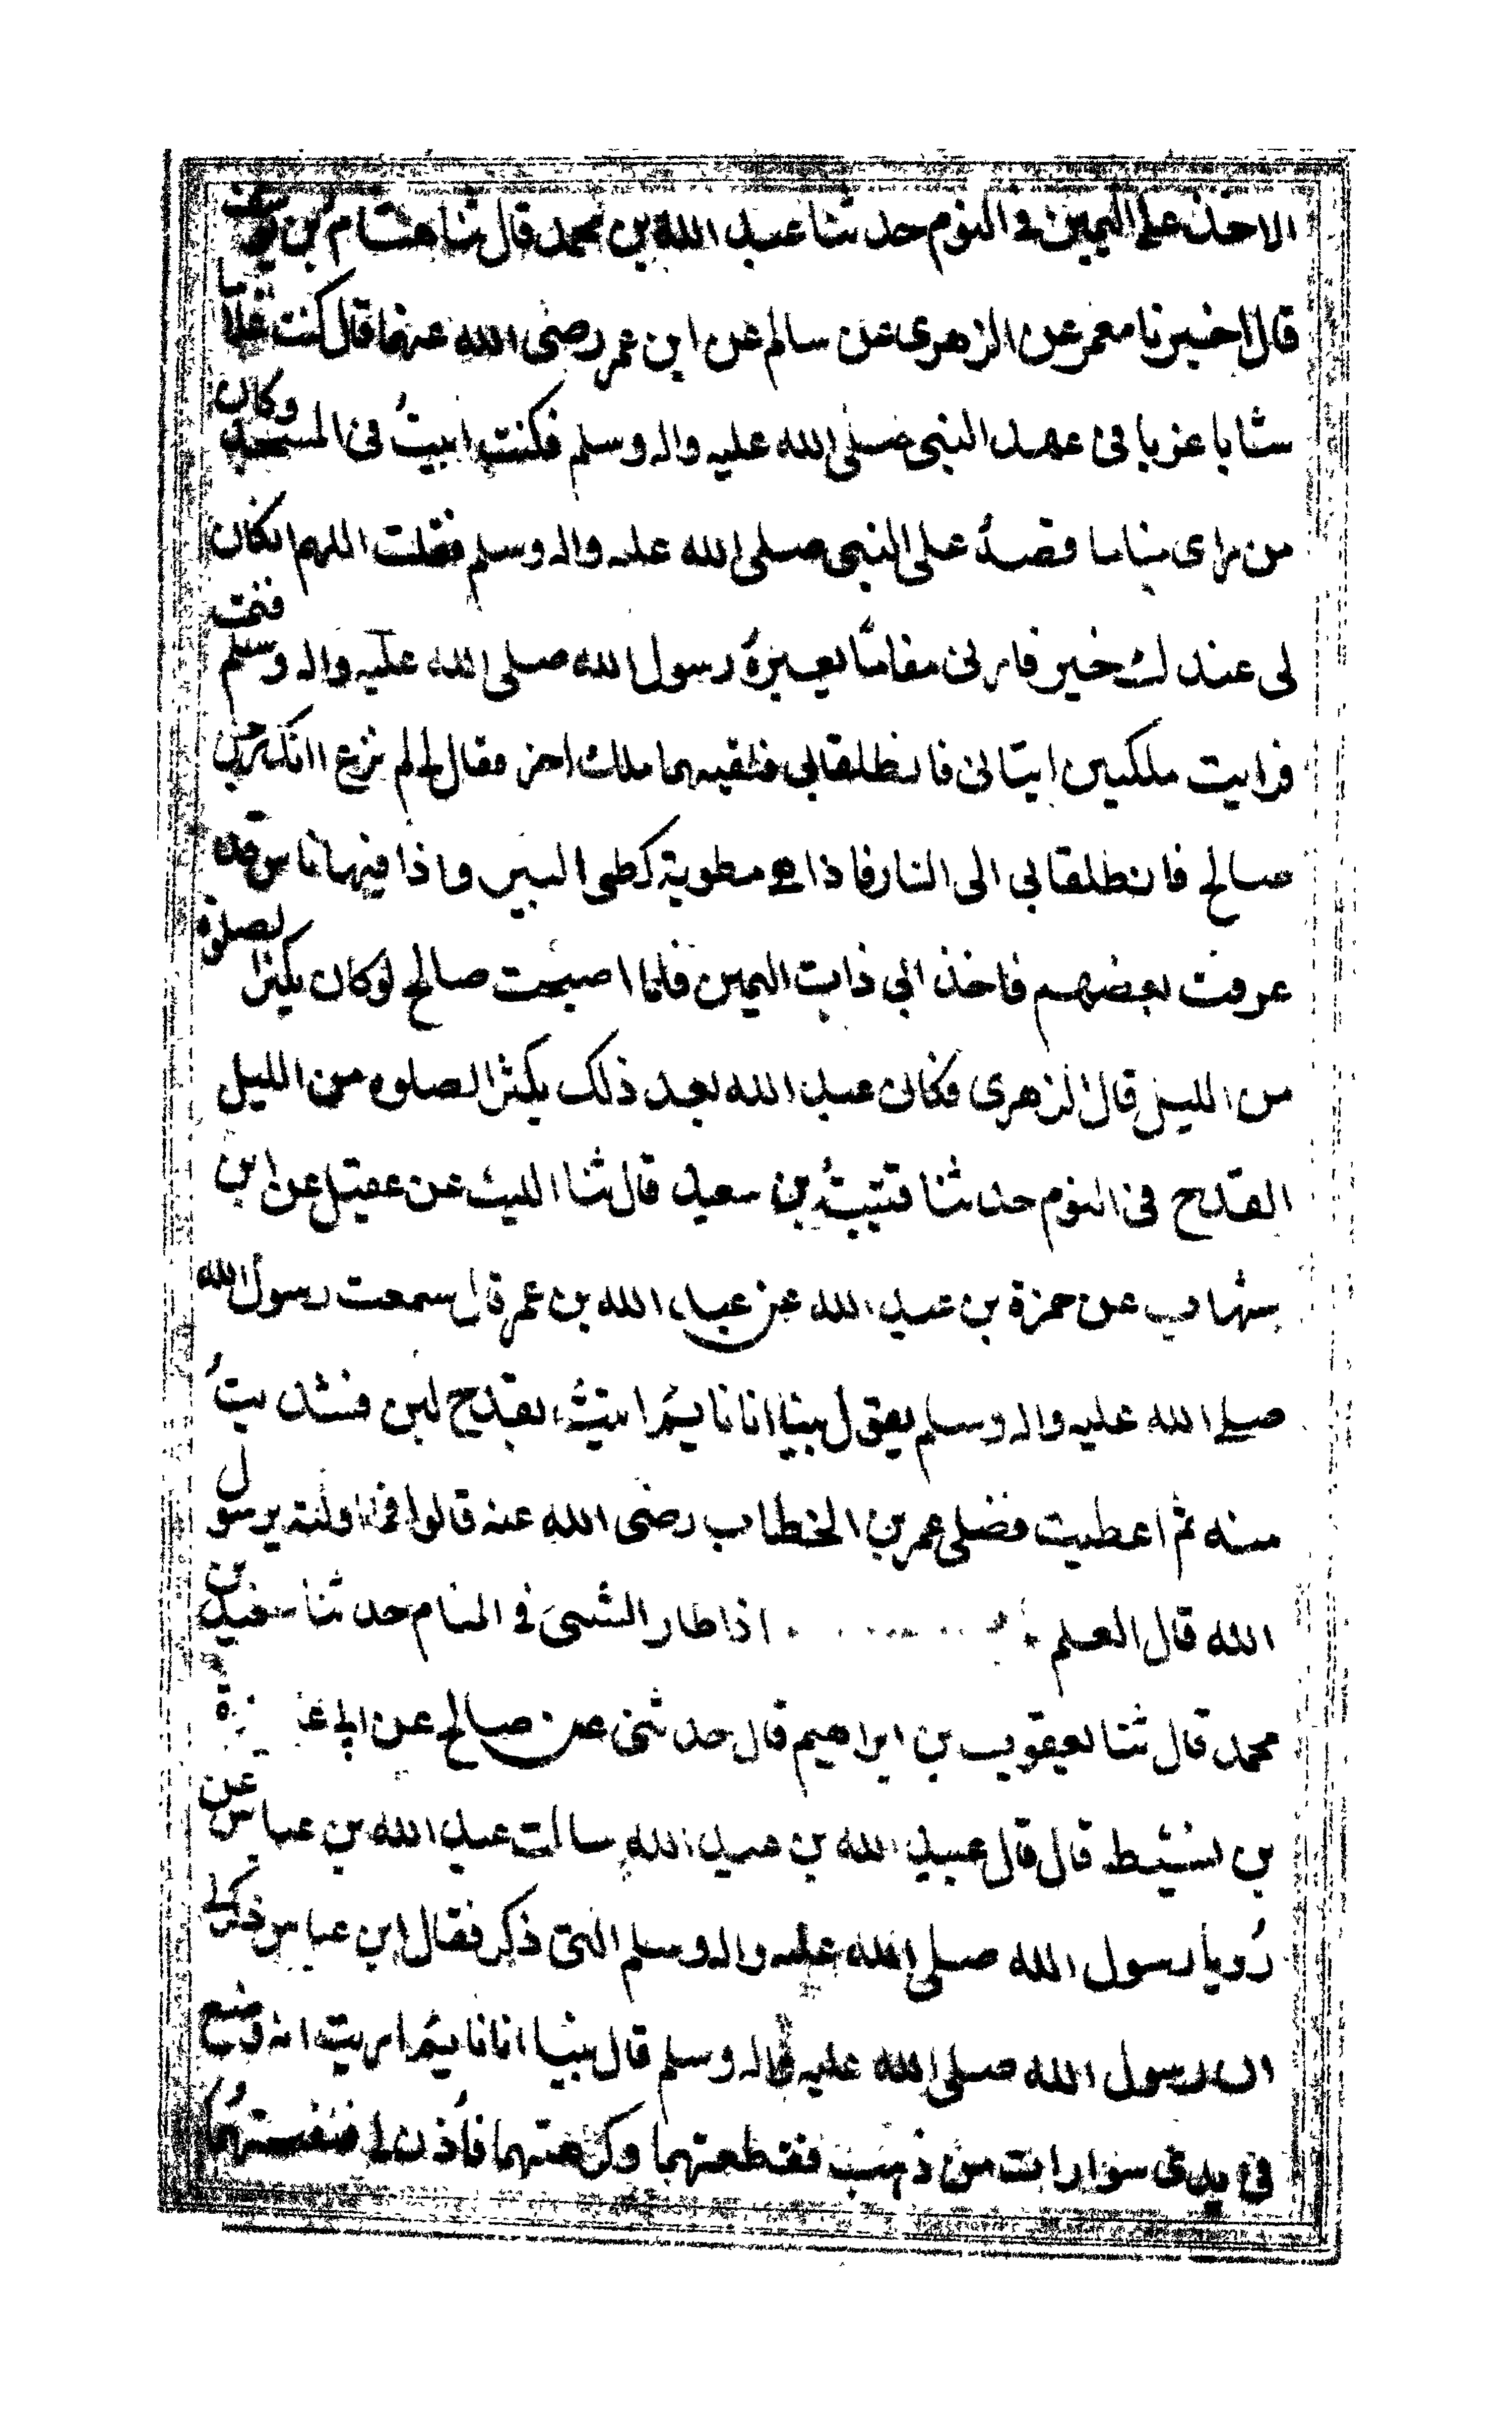 الاخذ على اليمين في النوم حدثنا عبد الله بن محمد قال ثنا هشام بن يوسف
قال اخبرنا معمر عن الزهرى عن سالم عن ابن عمر رضى الله عنهما قال كنت غلاما
شابا عزبا فى عهد النبى صلى الله عليه واله وسلم فكنت ابيت فى المسجد وكان
من راى مناما قصه على النبى صلى الله عليه واله وسلم فقلت اللهم ان كان
لى عندك خير فارنى مناما يعبره رسول الله صلى الله عليه واله وسلم فنمت
فرايت ملكين اتيانى فانطلقا بى فلقيهما ملك اخر فقال لى لم ترع انك رجل
صالح فانطلقا بى الى النار فاذا هى مطوية كطى البير واذا فيها ناس قد
عرفت بعضهم فاخذ ابى ذات اليمين فلما اصبحت صالح لو كان يكثر الصلوة
من الليل قال الزهرى فكان عبد الله بعد ذلك يكثر الصلوه من الليل
القدح فى النوم حدثنا قتيبة بن سعيد قال ثنا الليث عن عقيل عن ابن
شهاب عن حمزة بن عبد الله عن عبد الله بن عمر قال سمعت رسول الله
صلى الله عليه واله وسلم يقول بينا انا نايم اتيت بقدح لبن فشربت
منه ثم اعطيت فضلى عمر بن الخطاب رضى الله عنه قالوا فما اولته يرسول
الله قال العلم اذا طار الشىء فى المنام حدثنا سعيد بن
محمد قال ثنا يعقوب بن ابراهيم قال حدثنى عن صالح عن
بن نشيط قال قال عبيد الله بن عبد الله سالت عبد الله بن عباس عن
رويا رسول الله صلى الله عليه واله وسلم التى ذكر فقال ابن عباس ذكر لى
ان رسول الله صلى الله عليه واله وسلم قال بينا انا نايم اريت انه وضع
فى يدى سوارات من ذهب فقطعتهما وكرهتهما فاذن لى فنفختهما